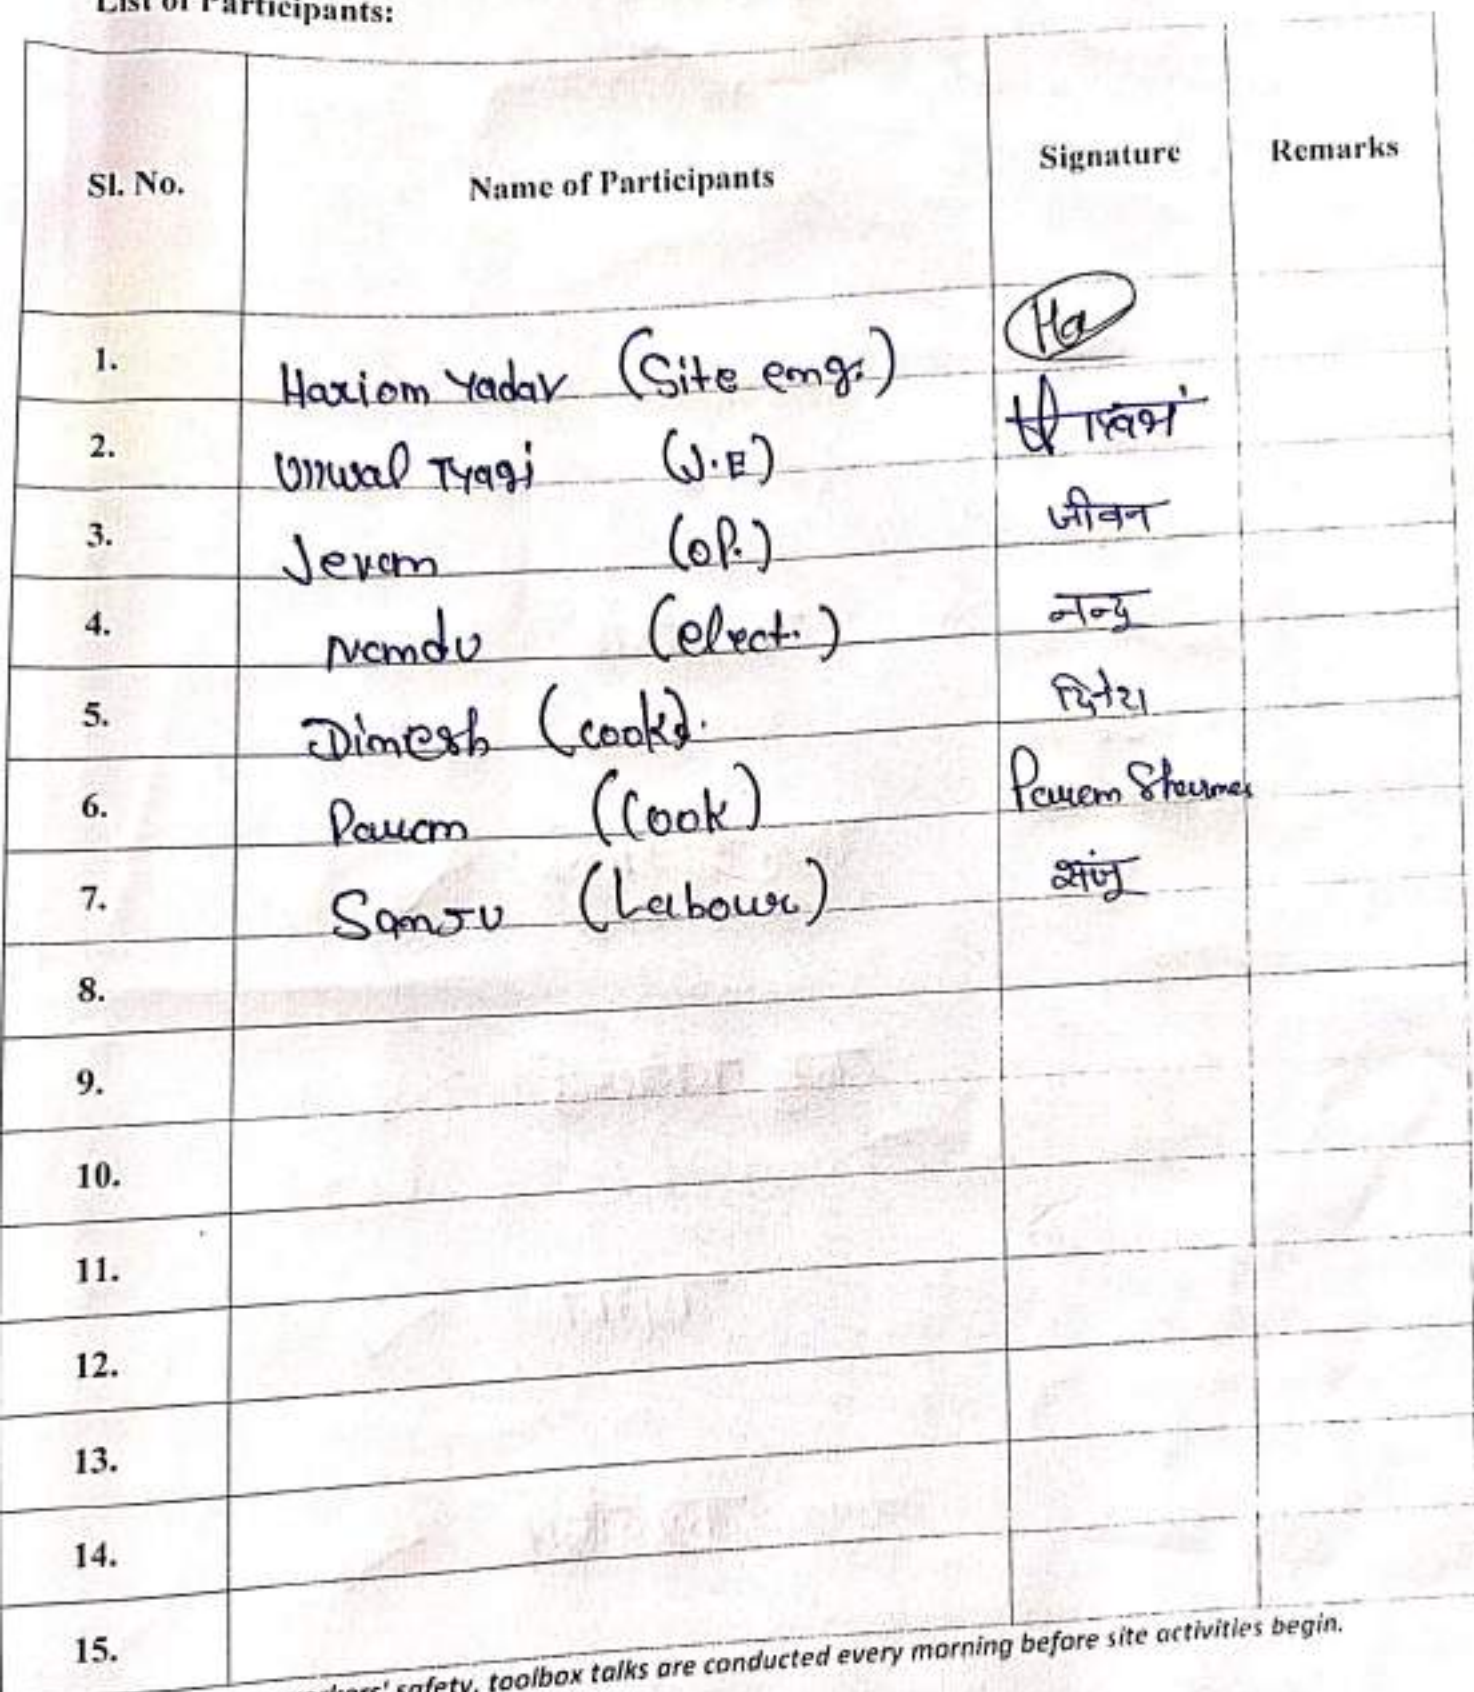 List of Participants:
Sl. No. Name of Participants Signature Remarks
1. Hariom Yadav (Site eng.) Ha
2. Tyagi (J.E)
3. Jevan (OP.) जीवन
4. Nandu (elect.) नन्दु
5. Dinesh (cook). दिनेश
6. Pawan (Cook) Pawan Sharma
7. Sanju (Labour) संजु
8.
9.
10.
11.
12.
13.
14.
15.
safety, toolbox talks are conducted every morning before site activities begin.